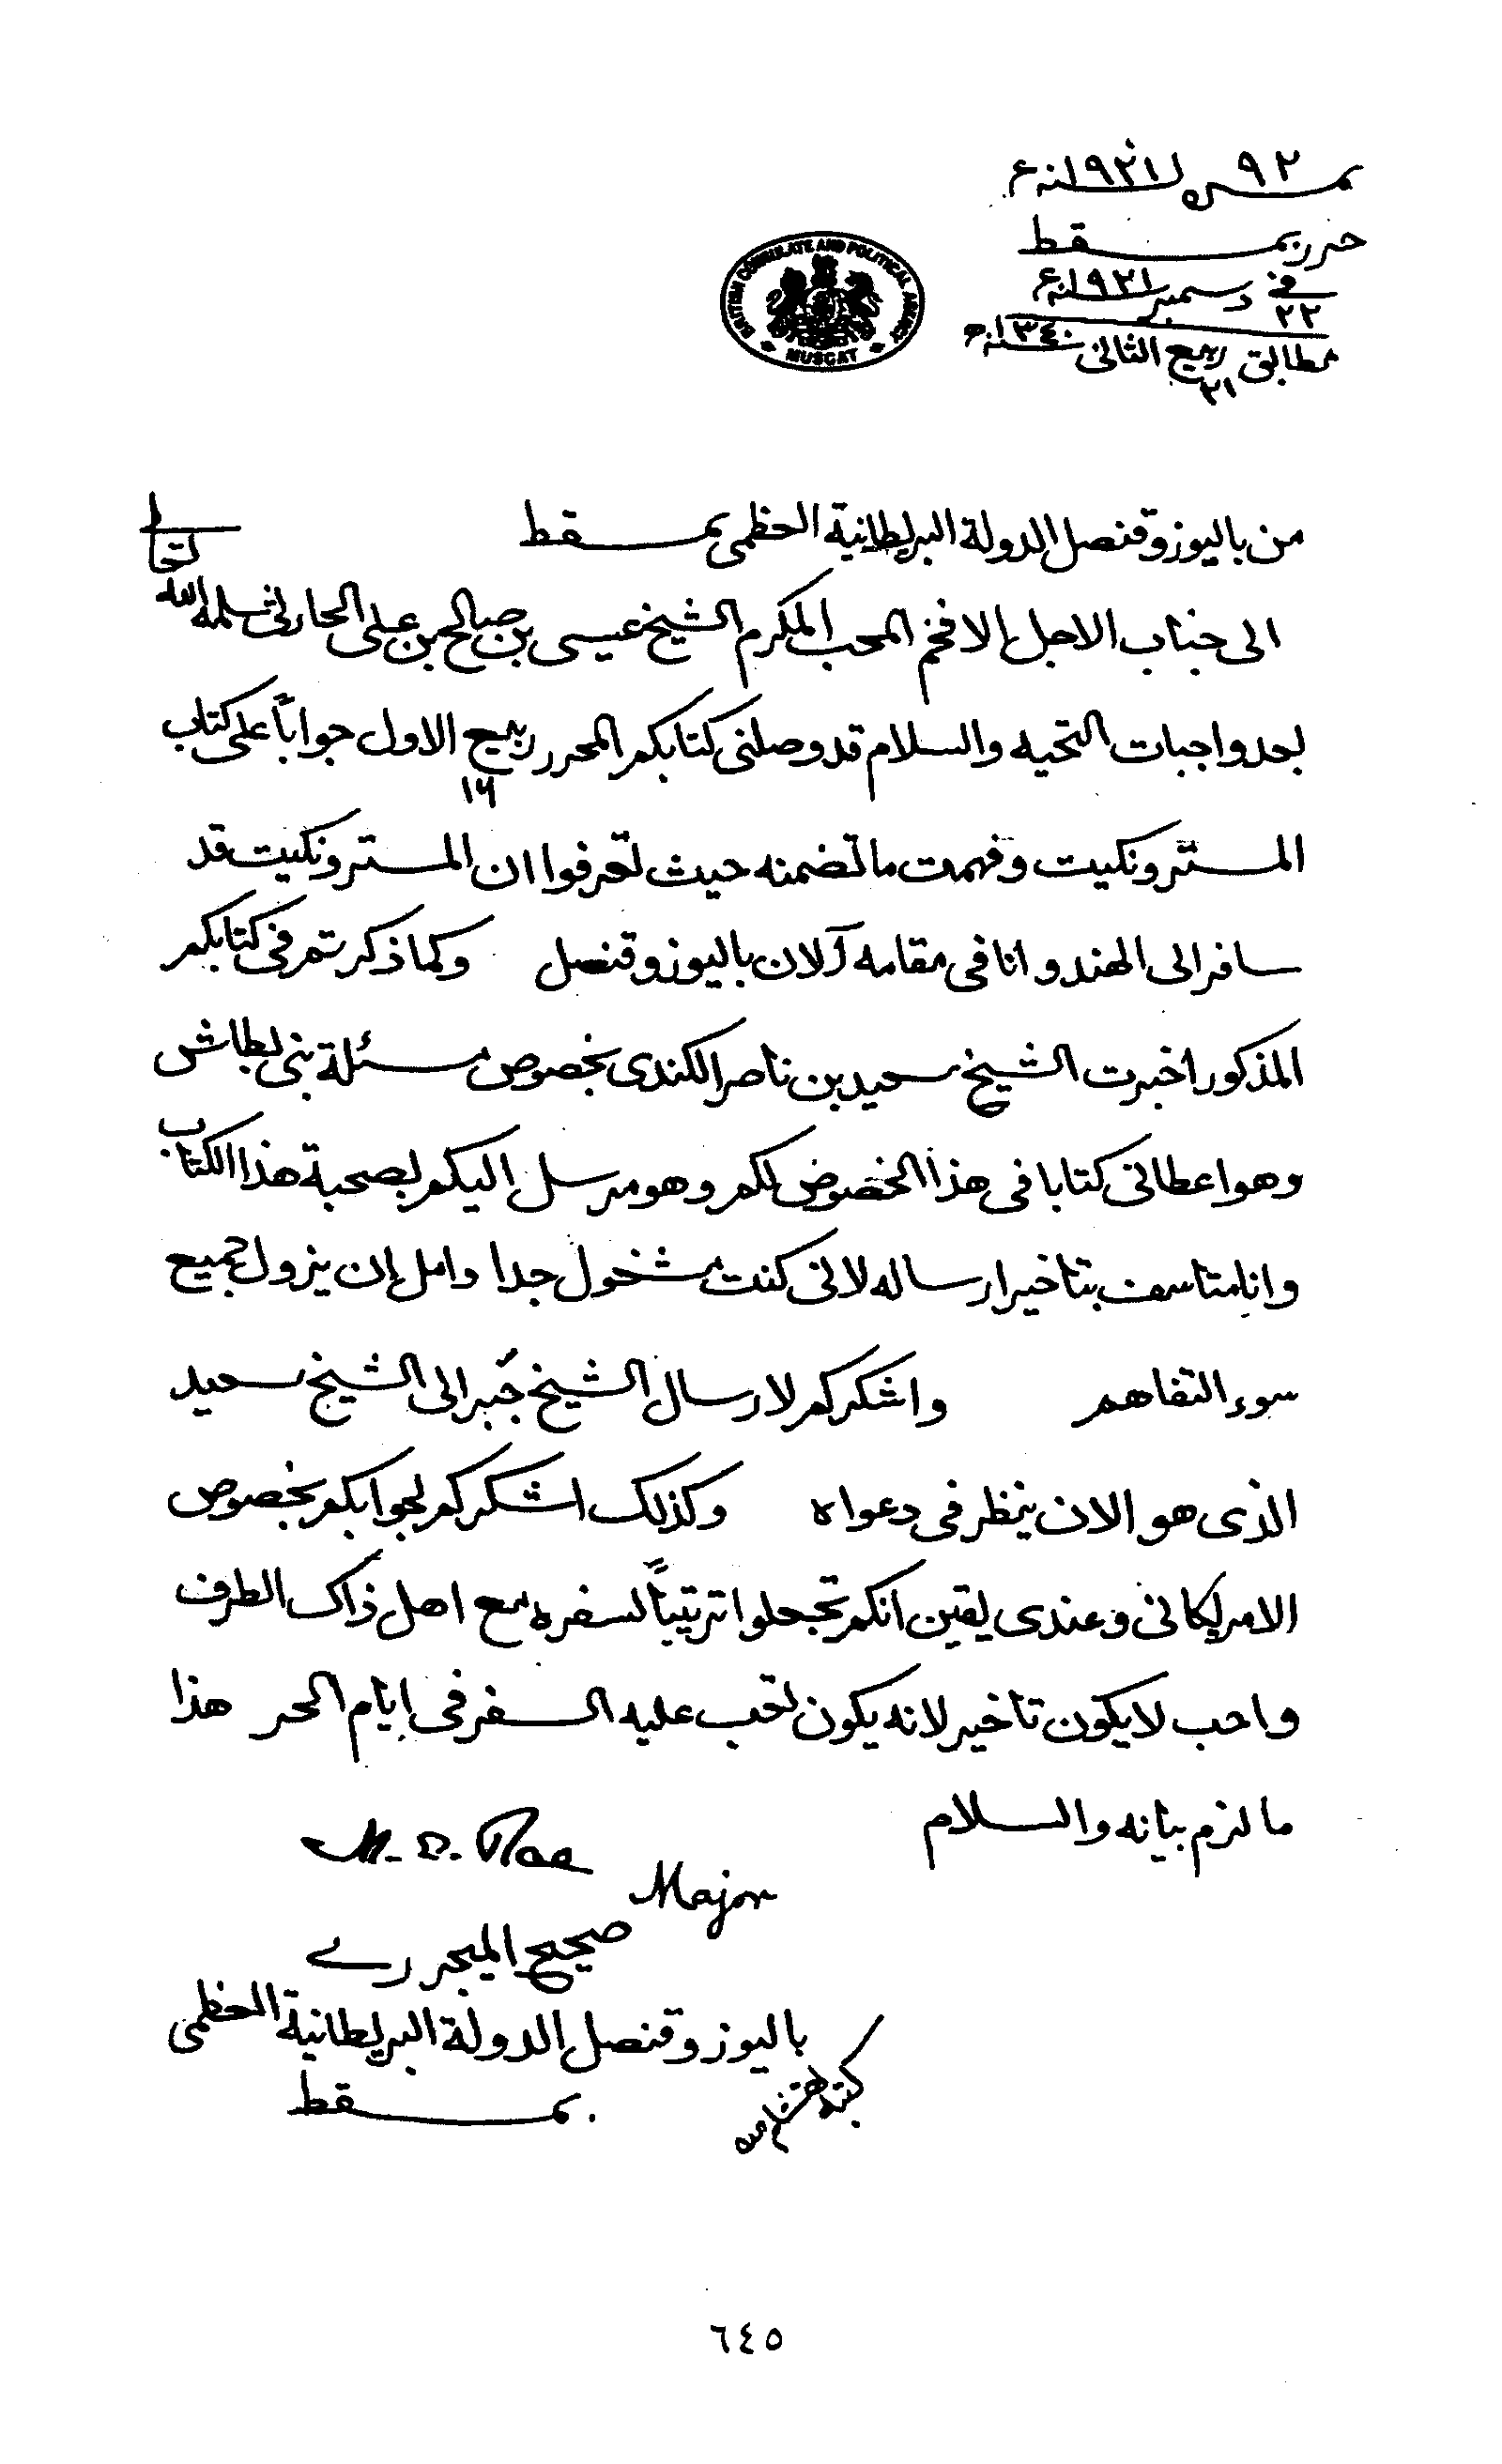 نمرة ٩٢ سنة ١٩٢١ء
حرر بمسقط
في ٢٢ دسمبر سنة ١٩٢١ء
مطابق ٢١ ربيع الثانى سنة ١٣٤٠ھ
BRITISH CONSULATE AND POLITICAL AGENCY
MUSCAT
من باليوز وقنصل الدولة البريطانية العظمى بمسقط
الى جناب الاجل الافخم المحب المكرم الشيخ عيسى بن صالح بن علي الحارثي سلمه الله تعالى
بعد واجبات التحيه والسلام قد وصلنى كتابكم المحرر ١٦ ربيع الاول جواباً على كتاب
المستر ونكيت وفهمت ما تضمنه حيث تعرفوا ان المستر ونكيت قد
سافر الى الهند وانا في مقامه آلان باليوز وقنصل وكما ذكرتم في كتابكم
المذكور اخبرت الشيخ سعيد بن ناصر الكندى بخصوص مسئلة بني بطاش
وهو اعطاني كتابا في هذا الخصوص لكم وهو مرسل اليكم بصحبة هذا الكتاب
وانا متاسف بتاخير ارساله لانى كنت مشغول جدا وامل ان يزول جميع
سوء التفاهم واشكركم لارسال الشيخ جبر الى الشيخ سعيد
الذى هو الان ينظر في دعواه وكذلك اشكركم لجوابكم بخصوص
الامريكاني وعندى يقين انكم تجعلوا ترتيباً لسفره مع اهل ذاك الطرف
واحب لايكون تاخير لانه يكون تعب عليه السفر في ايام الحر هذا
ما لزم بيانه والسلام
M. E. Rae
Major
صحيح الميجر رے
باليوز وقنصل الدولة البريطانية العظمى
بمسقط
٦٤٥